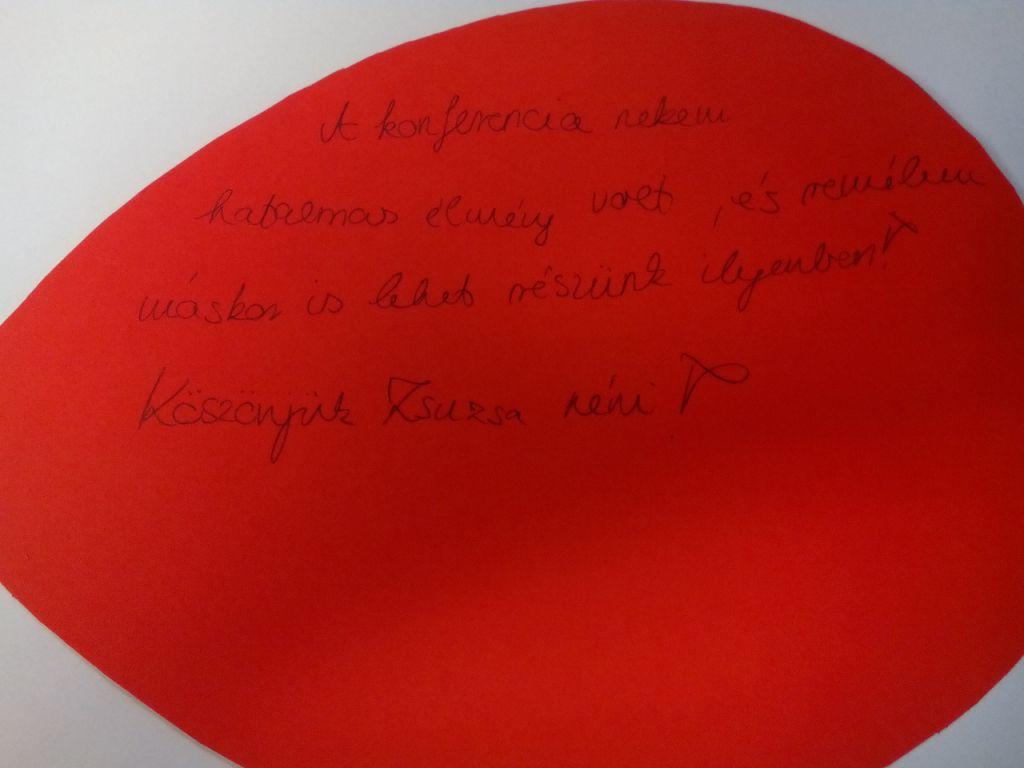 A konferencia nekem
hatalmas élmény volt, és remélem
máskor is lehet részünk ilyenben!
Köszönjük Zsuzsa néni